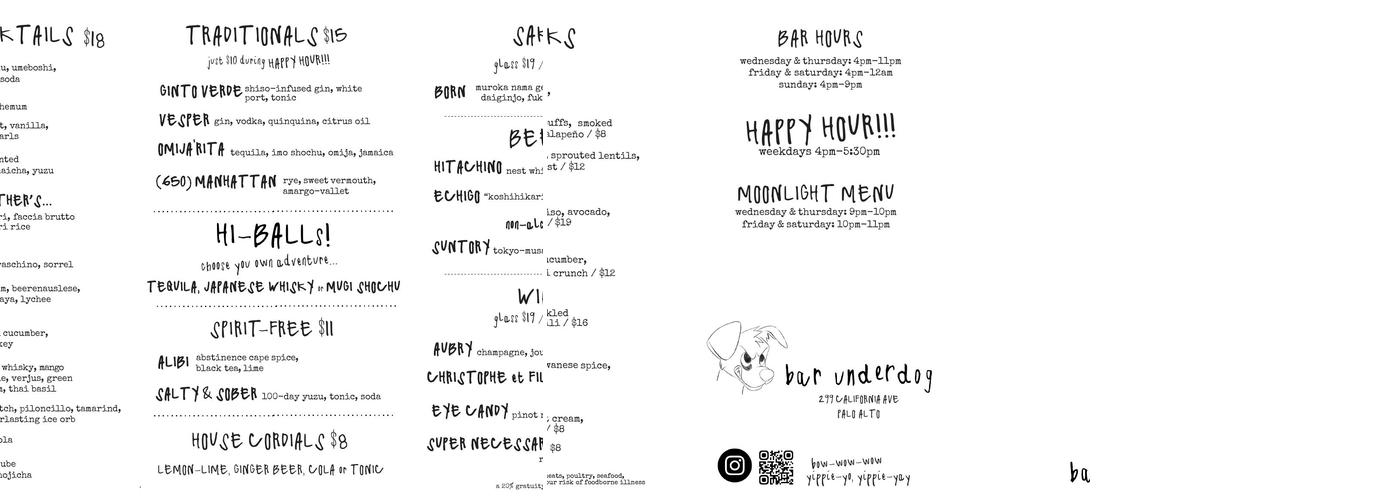 KTAILS $18
u, umeboshi,
soda
hemum
t, vanilla,
arls
nted
aicha, yuzu
THER'S...
ri, faccia brutto
ri rice
aschino, sorrel
m, beerenauslese,
aya, lychee
cucumber,
key
whisky, mango
e, verjus, green
n, thai basil
tch, piloncillo, tamarind,
erlasting ice orb
ola
ube
hojicha
TRADITIONALS $15
just $10 during HAPPY HOUR!!!
GINTO VERDE shiso-infused gin, white
port, tonic
VESPER gin, vodka, quinquina, citrus oil
OMIJA'RITA tequila, imo shochu, omija, jamaica
(650) MANHATTAN rye, sweet vermouth,
amargo-vallet
HI-BALLS!
choose you own adventure...
TEQUILA, JAPANESE WHISKY or MUGI SHOCHU
SPIRIT-FREE $11
ALIBI abstinence cape spice,
black tea, lime
SALTY & SOBER 100-day yuzu, tonic, soda
HOUSE CORDIALS $8
LEMON-LIME, GINGER BEER, COLA or TONIC
glass $19 /
BORN muroka nama ge
daiginjo, fuk
BE
HITACHINO nest whi
ECHIGO "koshihikari
non-alc
SUNTORY tokyo-mus
WI
glass $19 /
AUBRY champagne, jou
CHRISTOPHE et FIL
EYE CANDY pinot
SUPER NECESSAR
a 20% gratuity
,
uffs, smoked
alapeño / $8
, sprouted lentils,
st / $12
iso, avocado,
/ $19
cumber,
i crunch / $12
kled
li / $16
vanese spice,
cream,
/ $8
$8
eats, poultry, seafood,
ur risk of foodborne illness
BAR HOURS
wednesday & thursday: 4pm-11pm
friday & saturday: 4pm-12am
sunday: 4pm-9pm
HAPPY HOUR!!!
weekdays 4pm-5:30pm
MOONLIGHT MENU
wednesday & thursday: 9pm-10pm
friday & saturday: 10pm-11pm
bar underdog
299 CALIFORNIA AVE
PALO ALTO
bow-wow-wow
yippie-yo, yippie-yay
ba